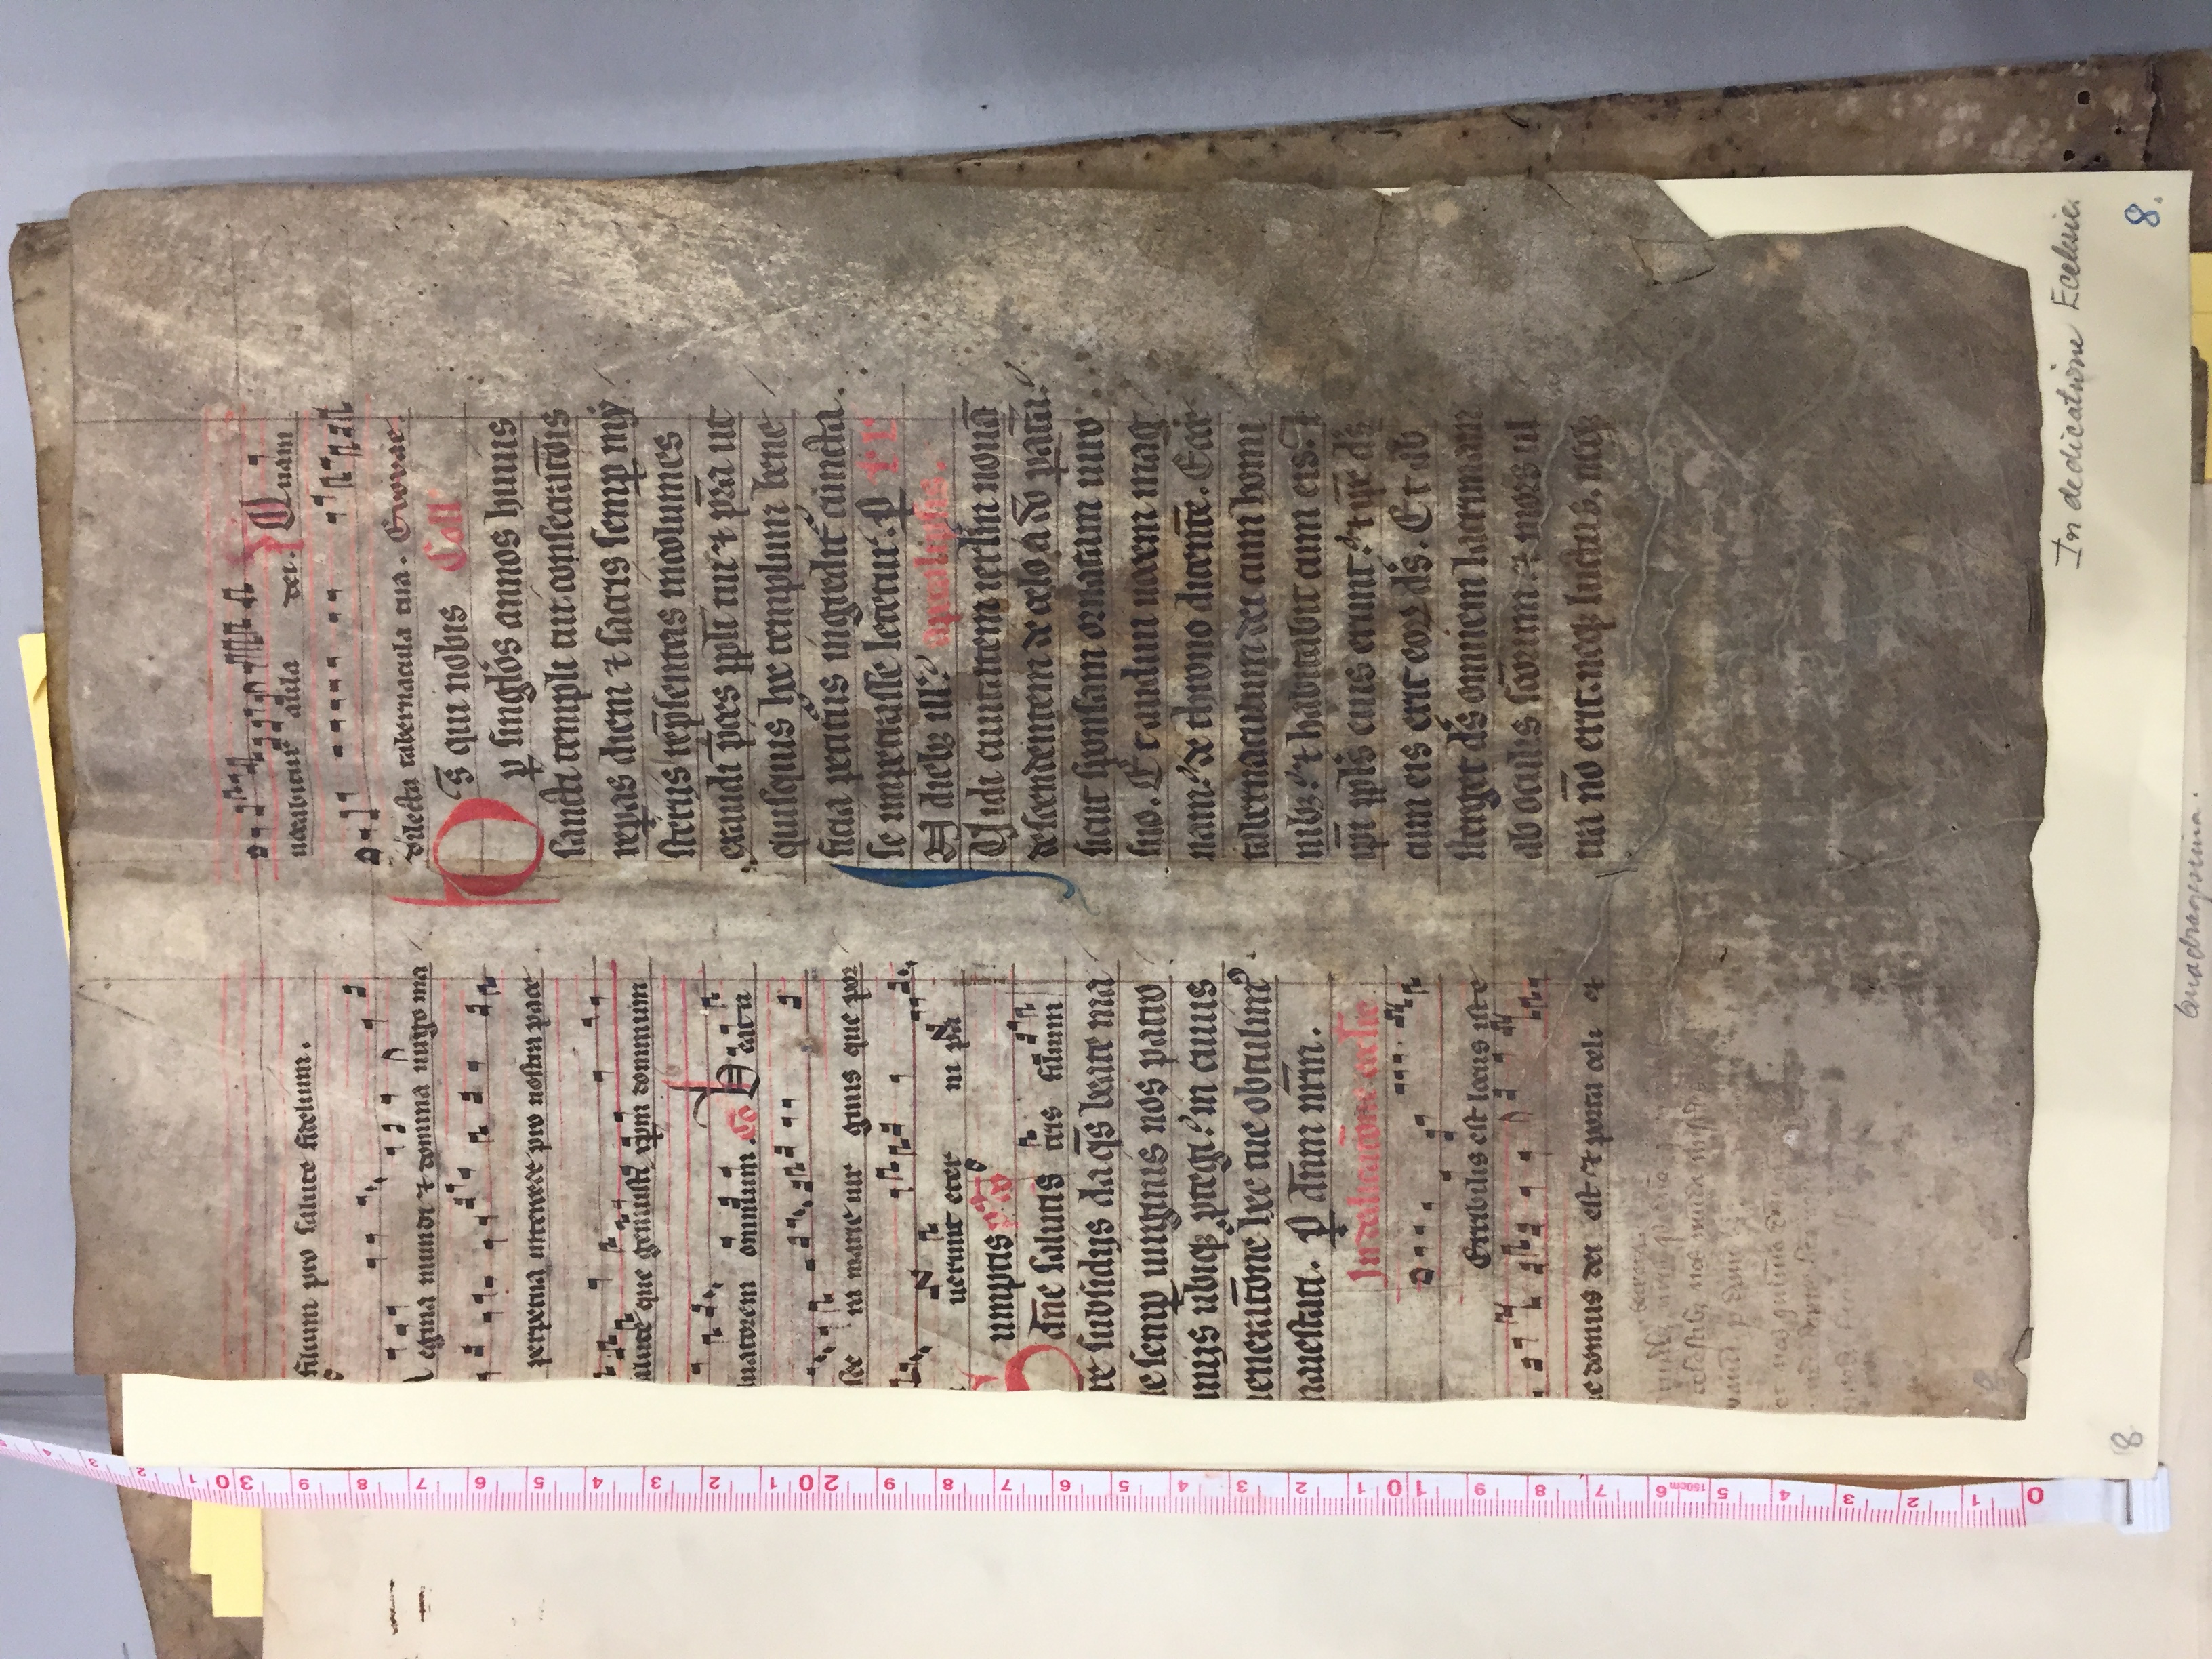 filium pro salute fidelium.
egina mundi ⁊ domina uirgo ma
perpetua intercede pro nostra pace
alute que genuisti xp̄m dominum
luatorem omnium. Cō Beata
sce ra marie uir ginis que por
uerunt eter ni pa
umptis
dn̄e salutis tris filium
re subsidijs da qs̄ beate ma
ie semꝑ uirginis nos patro
nijs ubiqꝫ ꝓtegi in cuius
eneratōne hec tue obtulimꝰ
naiestati. ꝑ dn̄m nr̄m.
In dedicatōne ecclie
Erribilis est locus iste
ic domus dei est ⁊ porta celi et
celestibꝫ nos
uocabitur aula dei. Quam
dilecta tabernacula tua. Evovae
Ds̄ qui nobis Coll
ꝑ singlōs annos huius
sancti templi tui consecratōis
reꝑas diem ⁊ sacris semꝑ my
sterijs rep̄sentas incolumes
exaudi p̄ces ppl̄i tui ⁊ p̄ra ut
quisquis hoc templum bene
ficia petiturus ingredit᷑ cuncta
se impetrasse letetur. ꝑ
N diebꝫ ill̄ apocalipsis.
Vidi ciuitatem ierl̄m nouā
descendentem de celo a dō parata᷑
sicut sponsam ornatam uiro
suo. Et audiui uocem mag
nam de throno dicentē. Ecce
tabernaculum dei cum homi
nibꝫ ⁊ habitabit cum eis. ⁊
ip̄i ppl̄s eius erunt ⁊ ip̄e ds̄
cum eis erit eoꝝ ds̄. Et ab
sterget ds̄ omnem lacrimam
ab oculis scōrum ⁊ mors ul
tra nō erit. neqꝫ luctus. neqꝫ
In dedicatione Ecclesie.
8
8.
Quadragesima.